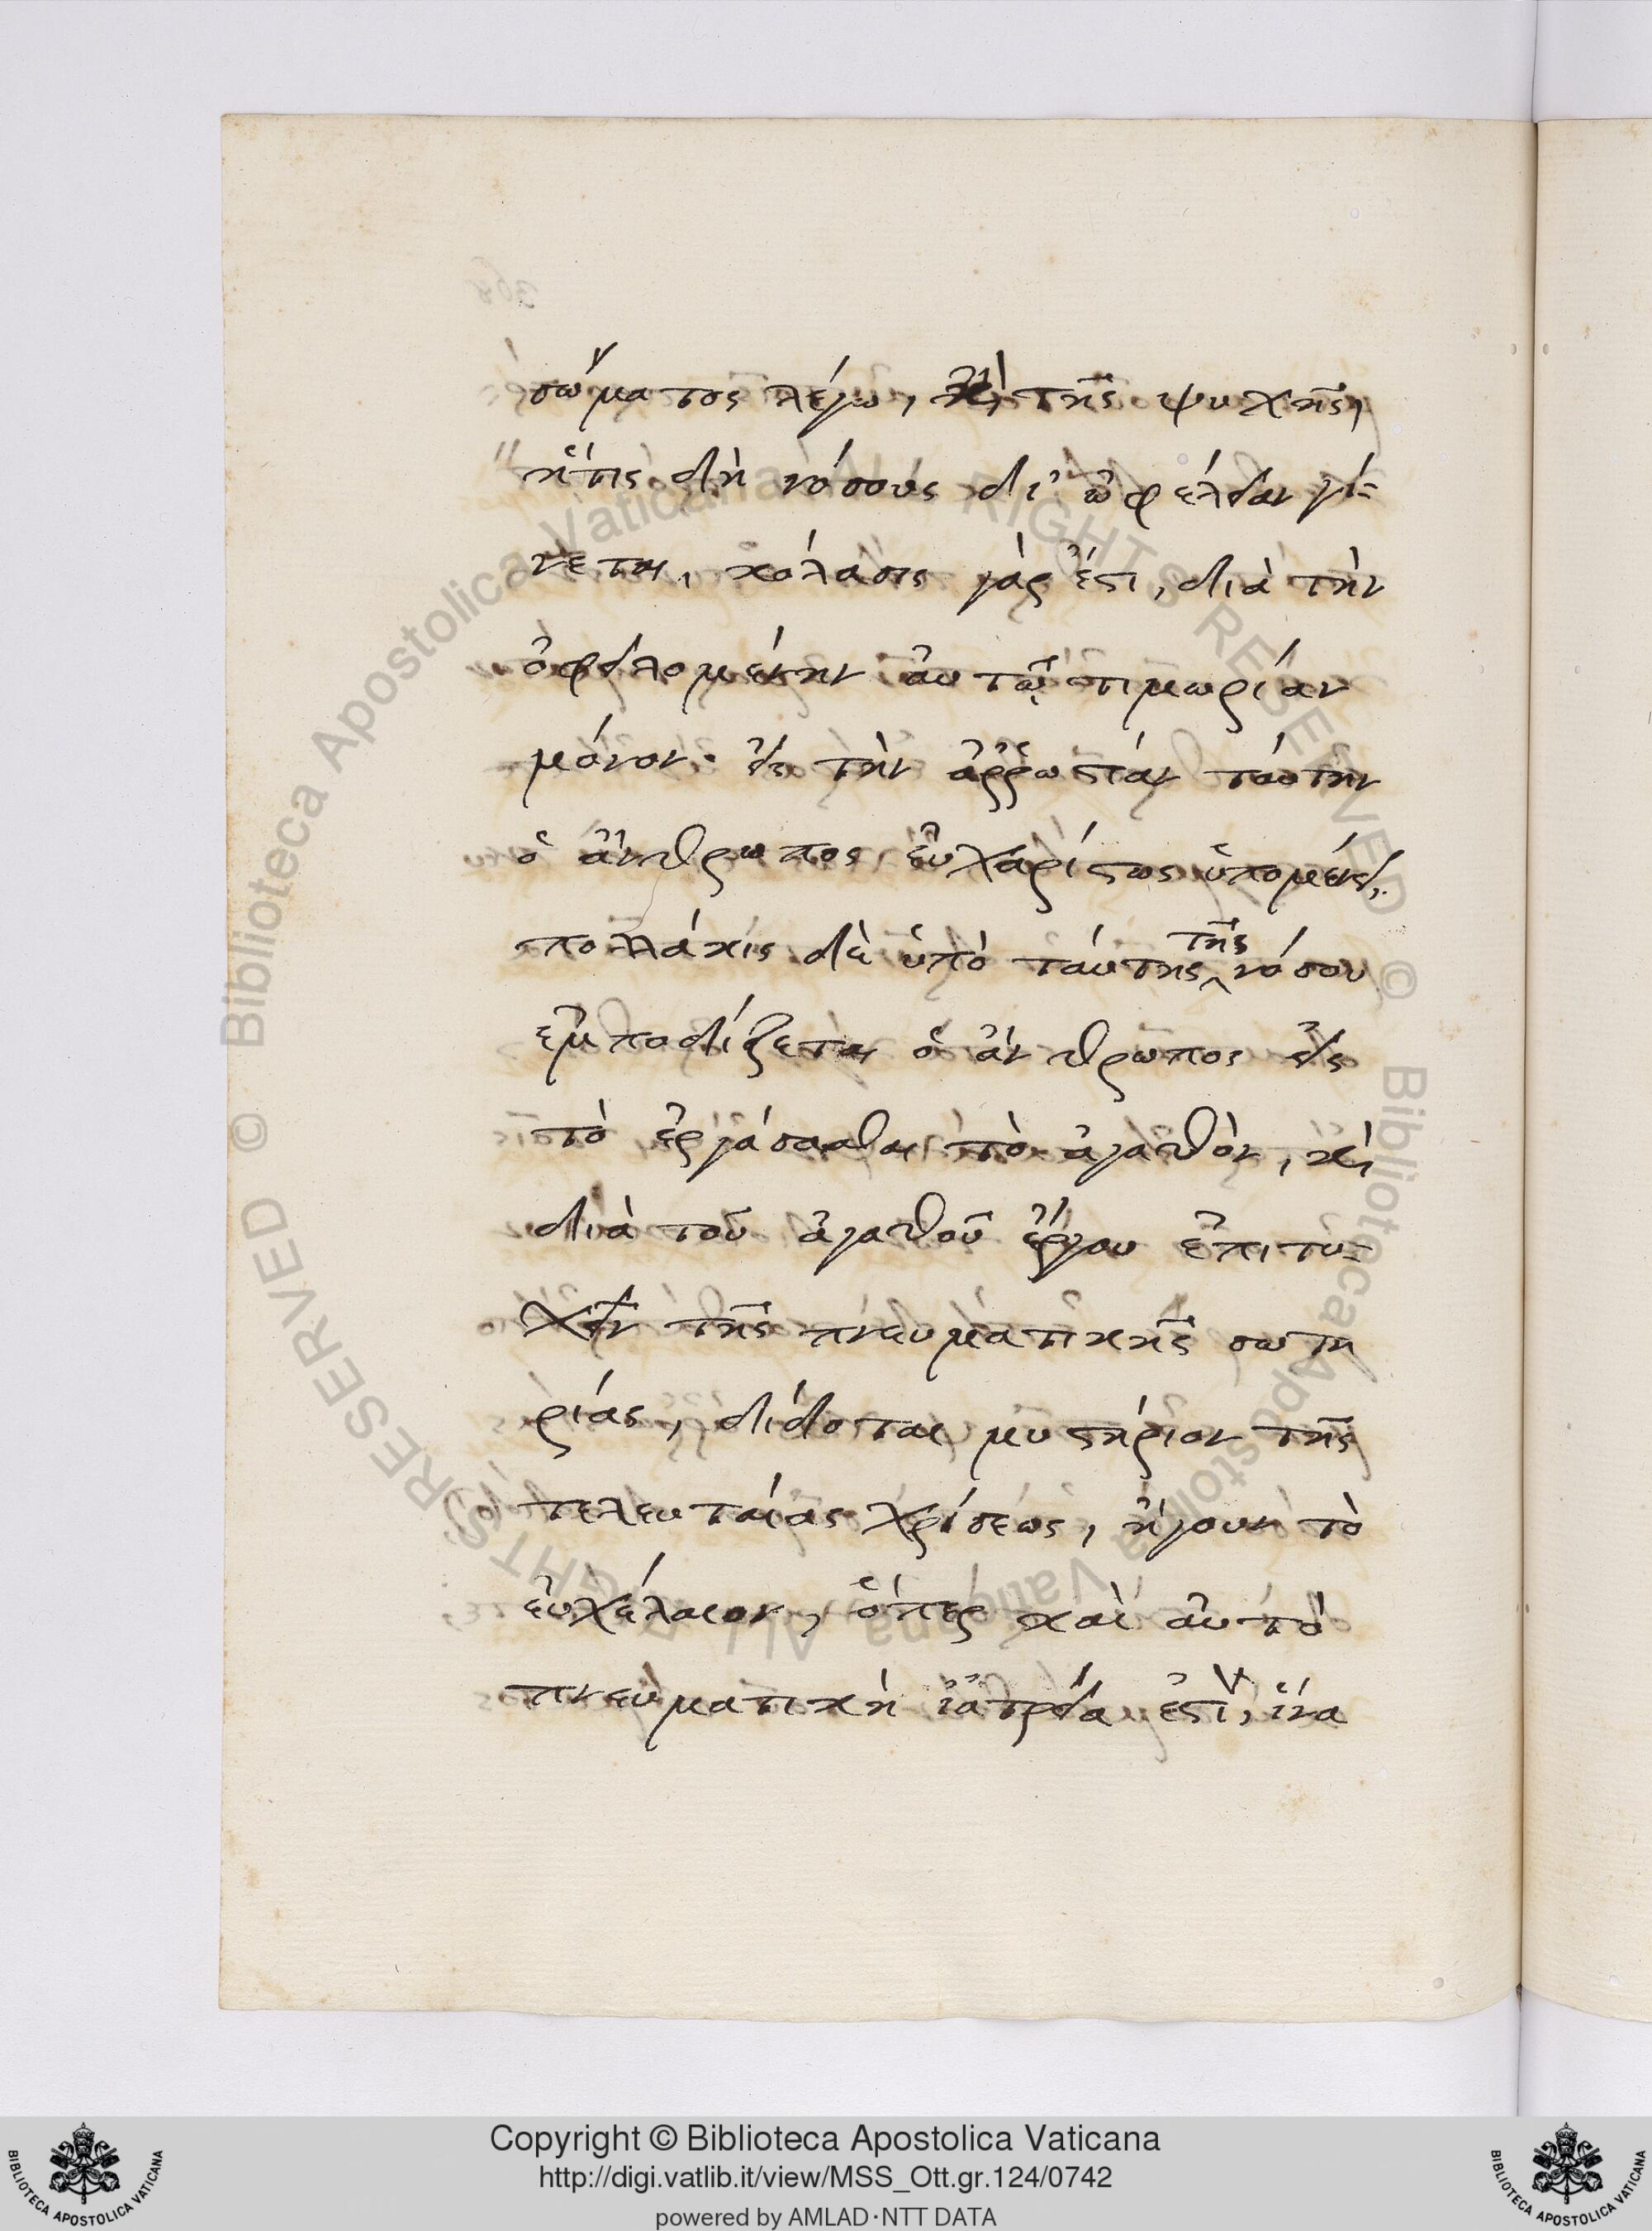 σώματος λέγω, καὶ τῆς ψυχῆς,
ἥτις δὴ νόσους δι' ὠφέλειαν γί-
νεται, κόλασις γάρ ἐστι, διὰ τὴν
ὀφειλομένην αὐτῷ τιμωρίαν
μόνον. εἰς τὴν ἀῤῥωστίαν ταύτην
ὁ ἄνθρωπος εὐχαρίστως ὑπομένει,
πολλάκις δὲ ὑπὸ ταύτης τῆς νόσου
ἐμποδίζεται ὁ ἄνθρωπος εἰς
τὸ ἐργάσασθαι τὸ ἀγαθὸν, καὶ
διὰ τοῦ ἀγαθοῦ ἔργου ἐπιτυ-
χεῖν τῆς πνευματικῆς σωτη
ρίας, δίδοται μυστήριον τῆς
τελευταίας χρίσεως, ἤγουν τὸ
εὐχέλαιον, ὅπερ καὶ αὐτὸ
πνευματικὴ ἰατρεία ἐστὶ, ἵνα
Copyright © Biblioteca Apostolica Vaticana
http://digi.vatlib.it/view/MSS_Ott.gr.124/0742
powered by AMLAD·NTT DATA
BIBLIOTECA APOSTOLICA VATICANA
BIBLIOTECA APOSTOLICA VATICANA
© Biblioteca Apostolica Vaticana ALL RIGHTS RESERVED
© Biblioteca Apostolica Vaticana ALL RIGHTS RESERVED